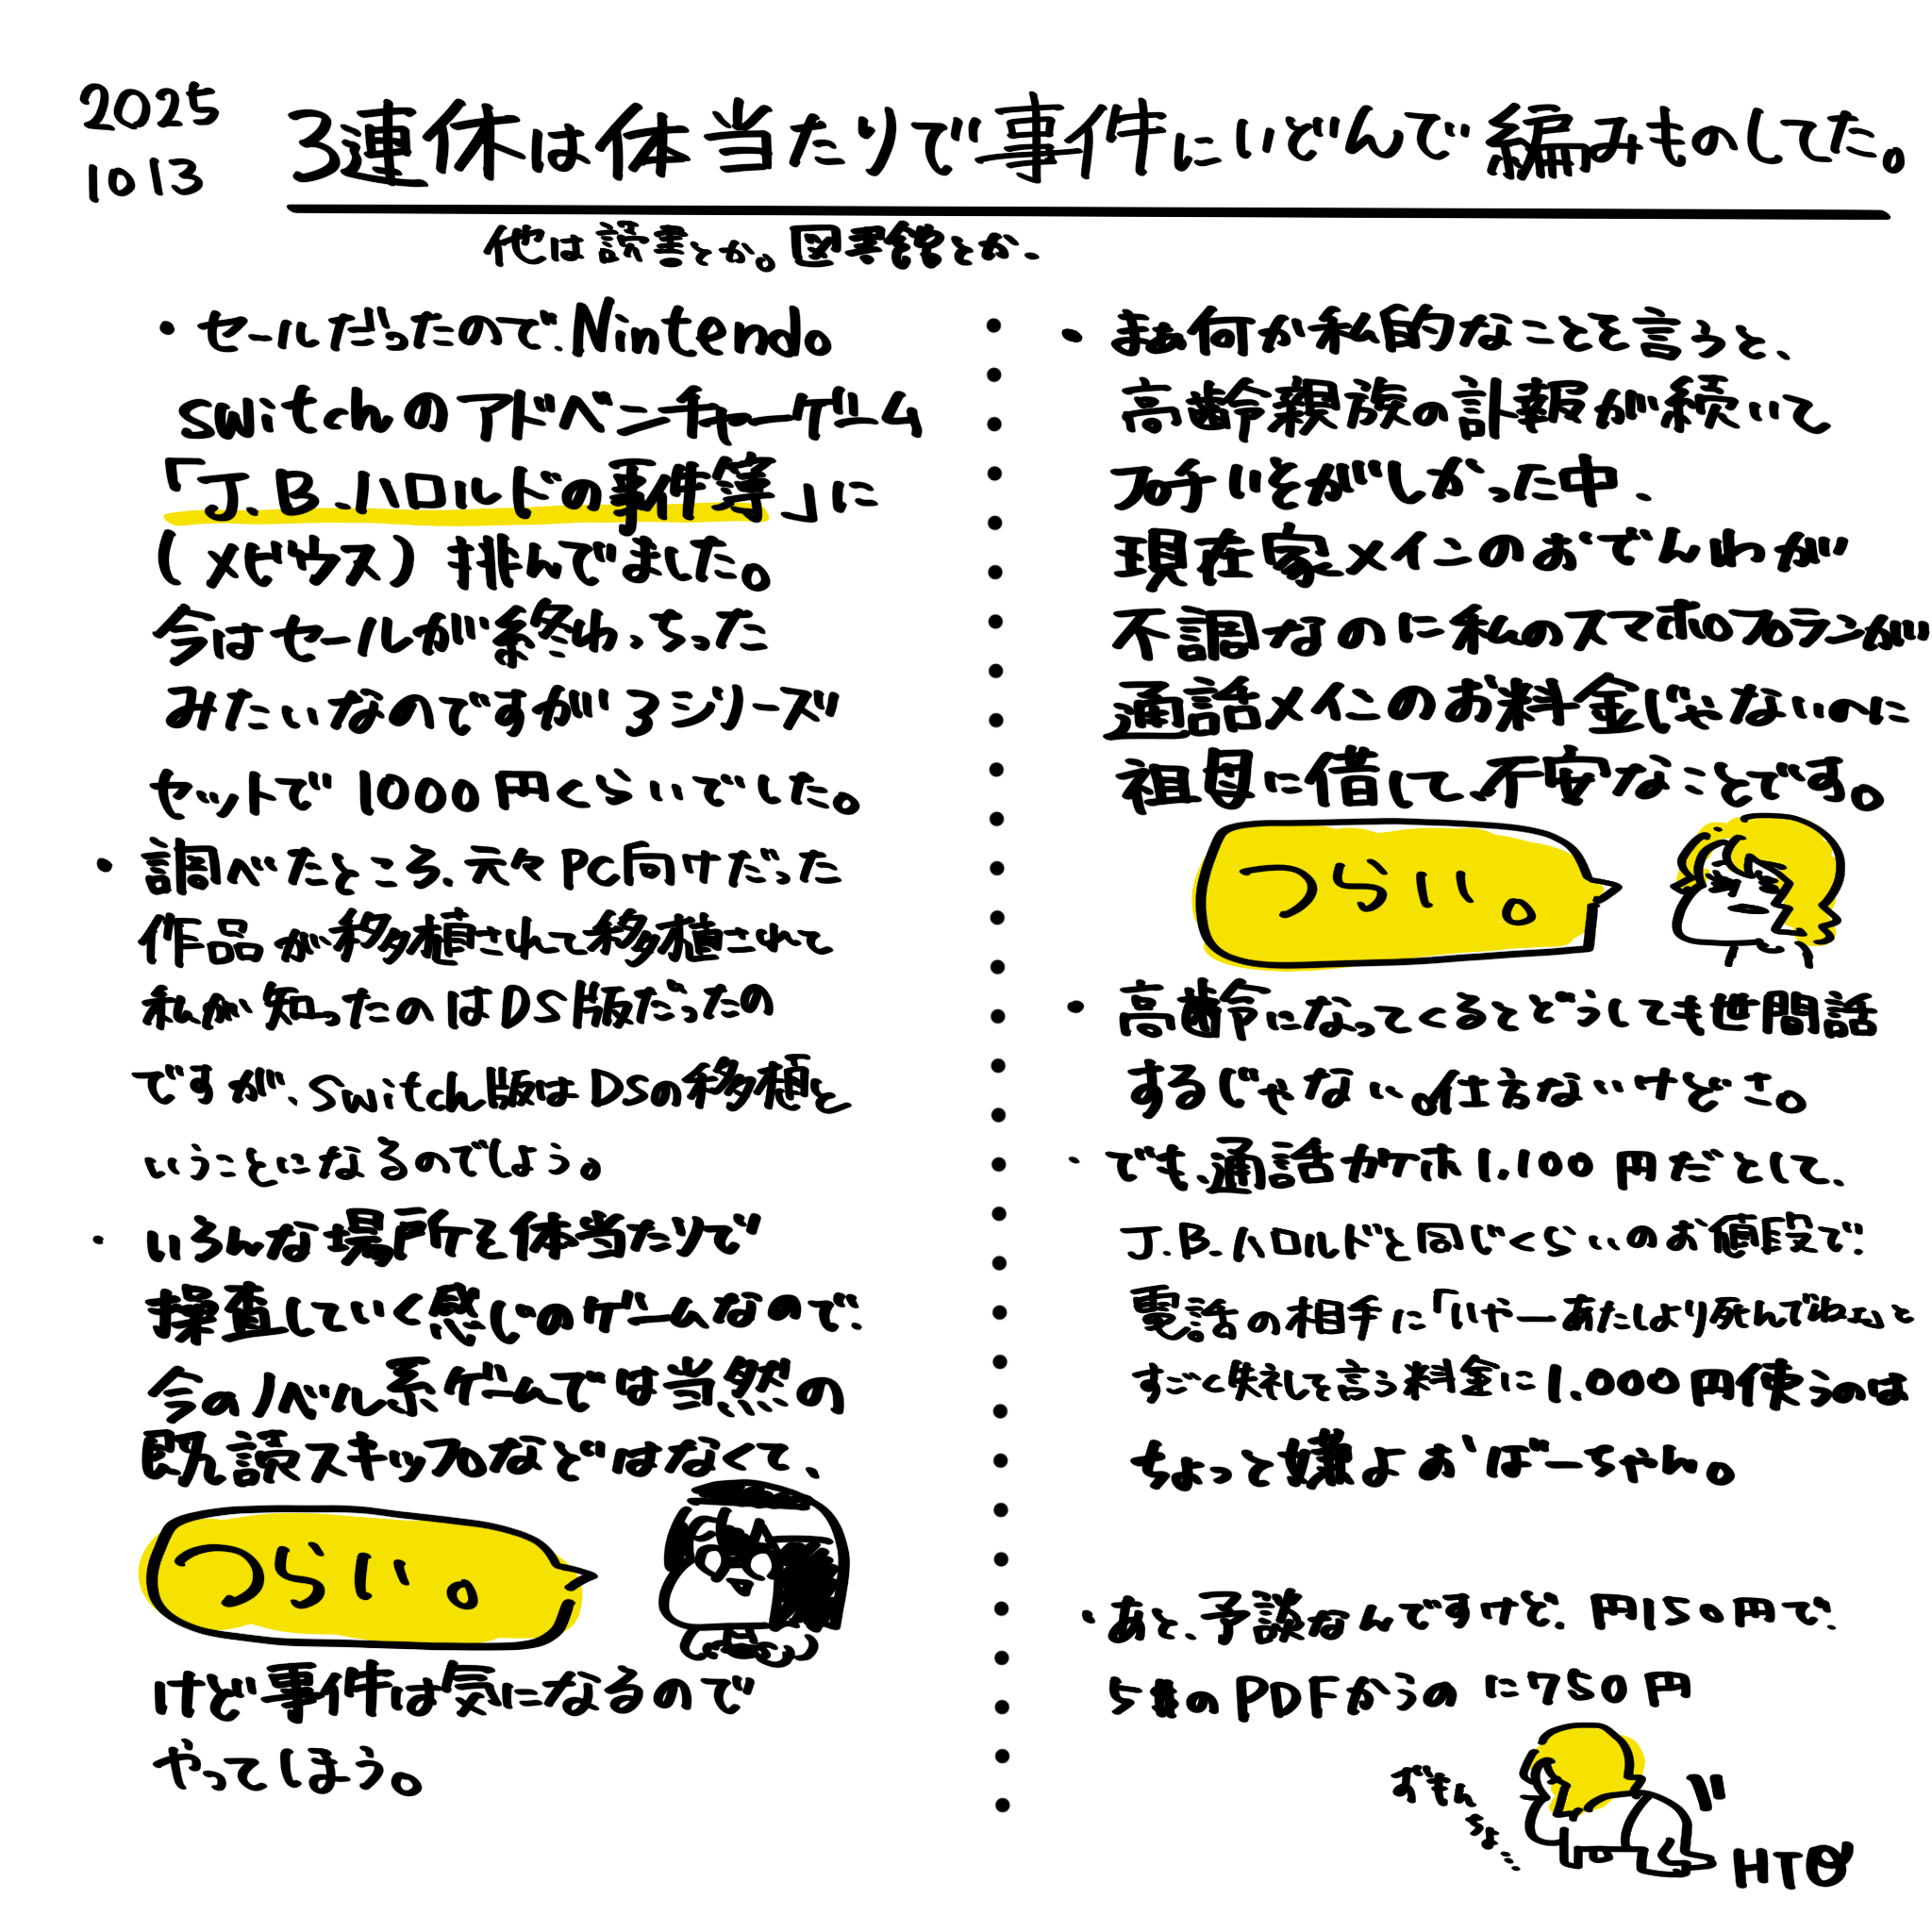 2025
10 13
3連休は体当たりで事件にいどんで編みものしてた。
他は読書とか。図書館とか、
・セールだったので、Nintendo
switchのアドベンチャーゲーム
「J.B.ハロルドの事件簿」に
(メビウス)挑んでました。
今はセールが終わっちった
みたいなのですが3シリーズ
セットで1000円くらいでした。
・調べたところ、元々PC向けだった
作品が移植されて移植されて
私が知ったのはDS版だったの
ですが、switch版はDSの移植と
いうことになるのでしょう。
・いろんな場所を体当たりで
捜査していく感じのゲームなので、
今のノベル系ゲームでは当然の
既読スキップなどはなくて、
つらい。
けど事件は気になるので
やってしまう。
・まぁ何か私的なことを言うと、
高齢親族の訃報が続いて
プチいそがしかった中、
現在家メインのおでんわが
不調なのに私のスマホのプランが
通話メインのお料金じゃないのに
祖母に借して、不安なことです。
つらい。
・高齢になってくるとどうしても世間話
するじゃない。仕方ないけどさ。
・でも、通話カケホ1.100円だとして、
J.B.ハロルドと同じくらいのお値段で、
電話の相手に「いやーあたしより死んでねェ」と
すごく失礼しを言う料金に1.000円使うのは
ちょっと嫌よおばーちゃん。
・あと、予談なんですけど、円150円で、
5$のPDFかうのに750円
おもん
ちょ...
HTO